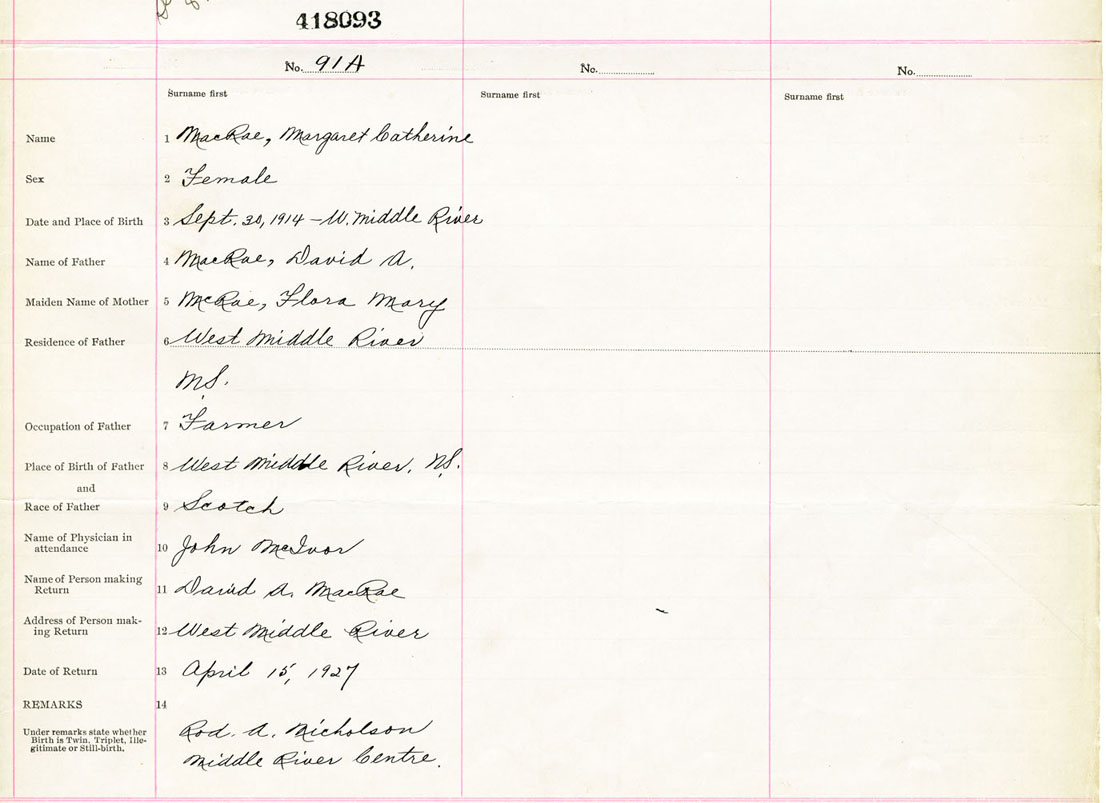 418093
No. 91A
No.
No.
Surname first
Surname first
Surname first
Name 1 MacRae, Margaret Catherine
Sex 2 Female
Date and Place of Birth 3 Sept. 30, 1914 – W. Middle River
Name of Father 4 MacRae, David A.
Maiden Name of Mother 5 McRae, Flora Mary
Residence of Father 6 West Middle River
N.S.
Occupation of Father 7 Farmer
Place of Birth of Father 8 West Middle River, N.S.
and
Race of Father 9 Scotch
Name of Physician in
attendance 10 John McIvor
Name of Person making
Return 11 David A. MacRae
Address of Person mak-
ing Return 12 West Middle River
Date of Return 13 April 15, 1927
REMARKS 14
Under remarks state whether
Birth is Twin, Triplet, Ille-
gitimate or Still-birth.
Rod. A. Nicholson
Middle River Centre.